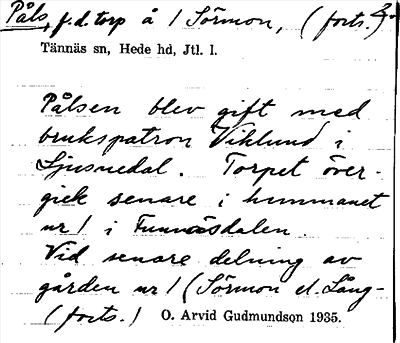 Påls, f.d. torp å 1 Sörmon, (forts.) 2.
Tännäs sn, Hede hd, Jtl. l.
Pålsen blev gift med
brukspatron Viklund i
Ljusnedal. Torpet över-
gick senare i hemmanet
nr 1 i Funnäsdalen.
Vid senare delning av
gården nr 1 (Sörmon el. Lång-
(forts.) O. Arvid Gudmundson 1935.